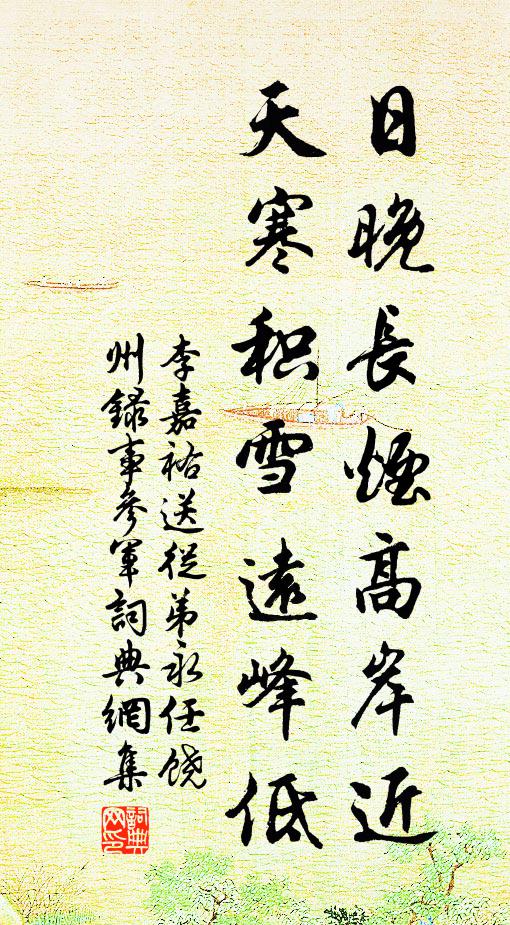 日晚長煙高岸近
天寒积雪遠峰低
李嘉祐送從弟永任饶
州録事參軍詞典網集
詞典網印